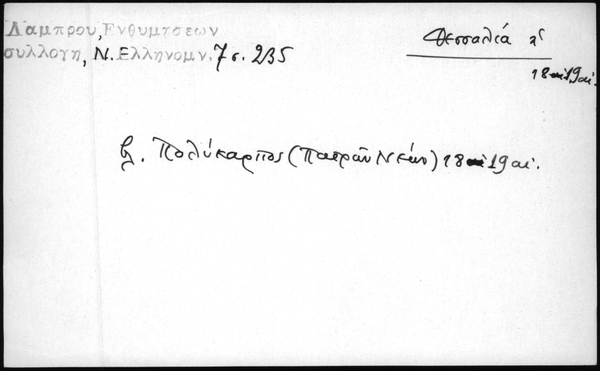 Λάμπρου, Ενθυμήσεων
συλλογη, Ν. Ελληνομν. 7 σ. 235
Θεσσαλία
18 19 αἰ.
βλ. Πολύκαρπος (Πατρῶν Νέων) 18 19 αἰ.